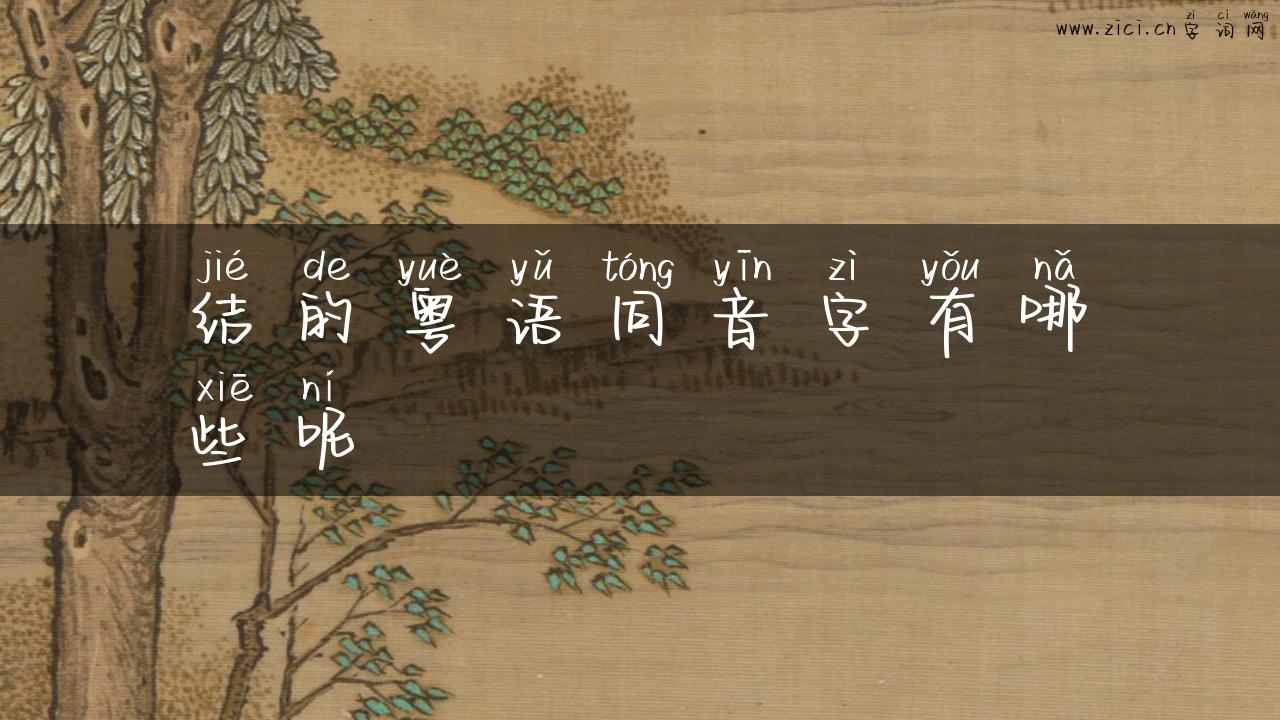 zì cí wǎng
www.zici.cn 字词网
jié de yuè yǔ tóng yīn zì yǒu nǎ
结的粤语同音字有哪
xiē ní
些呢